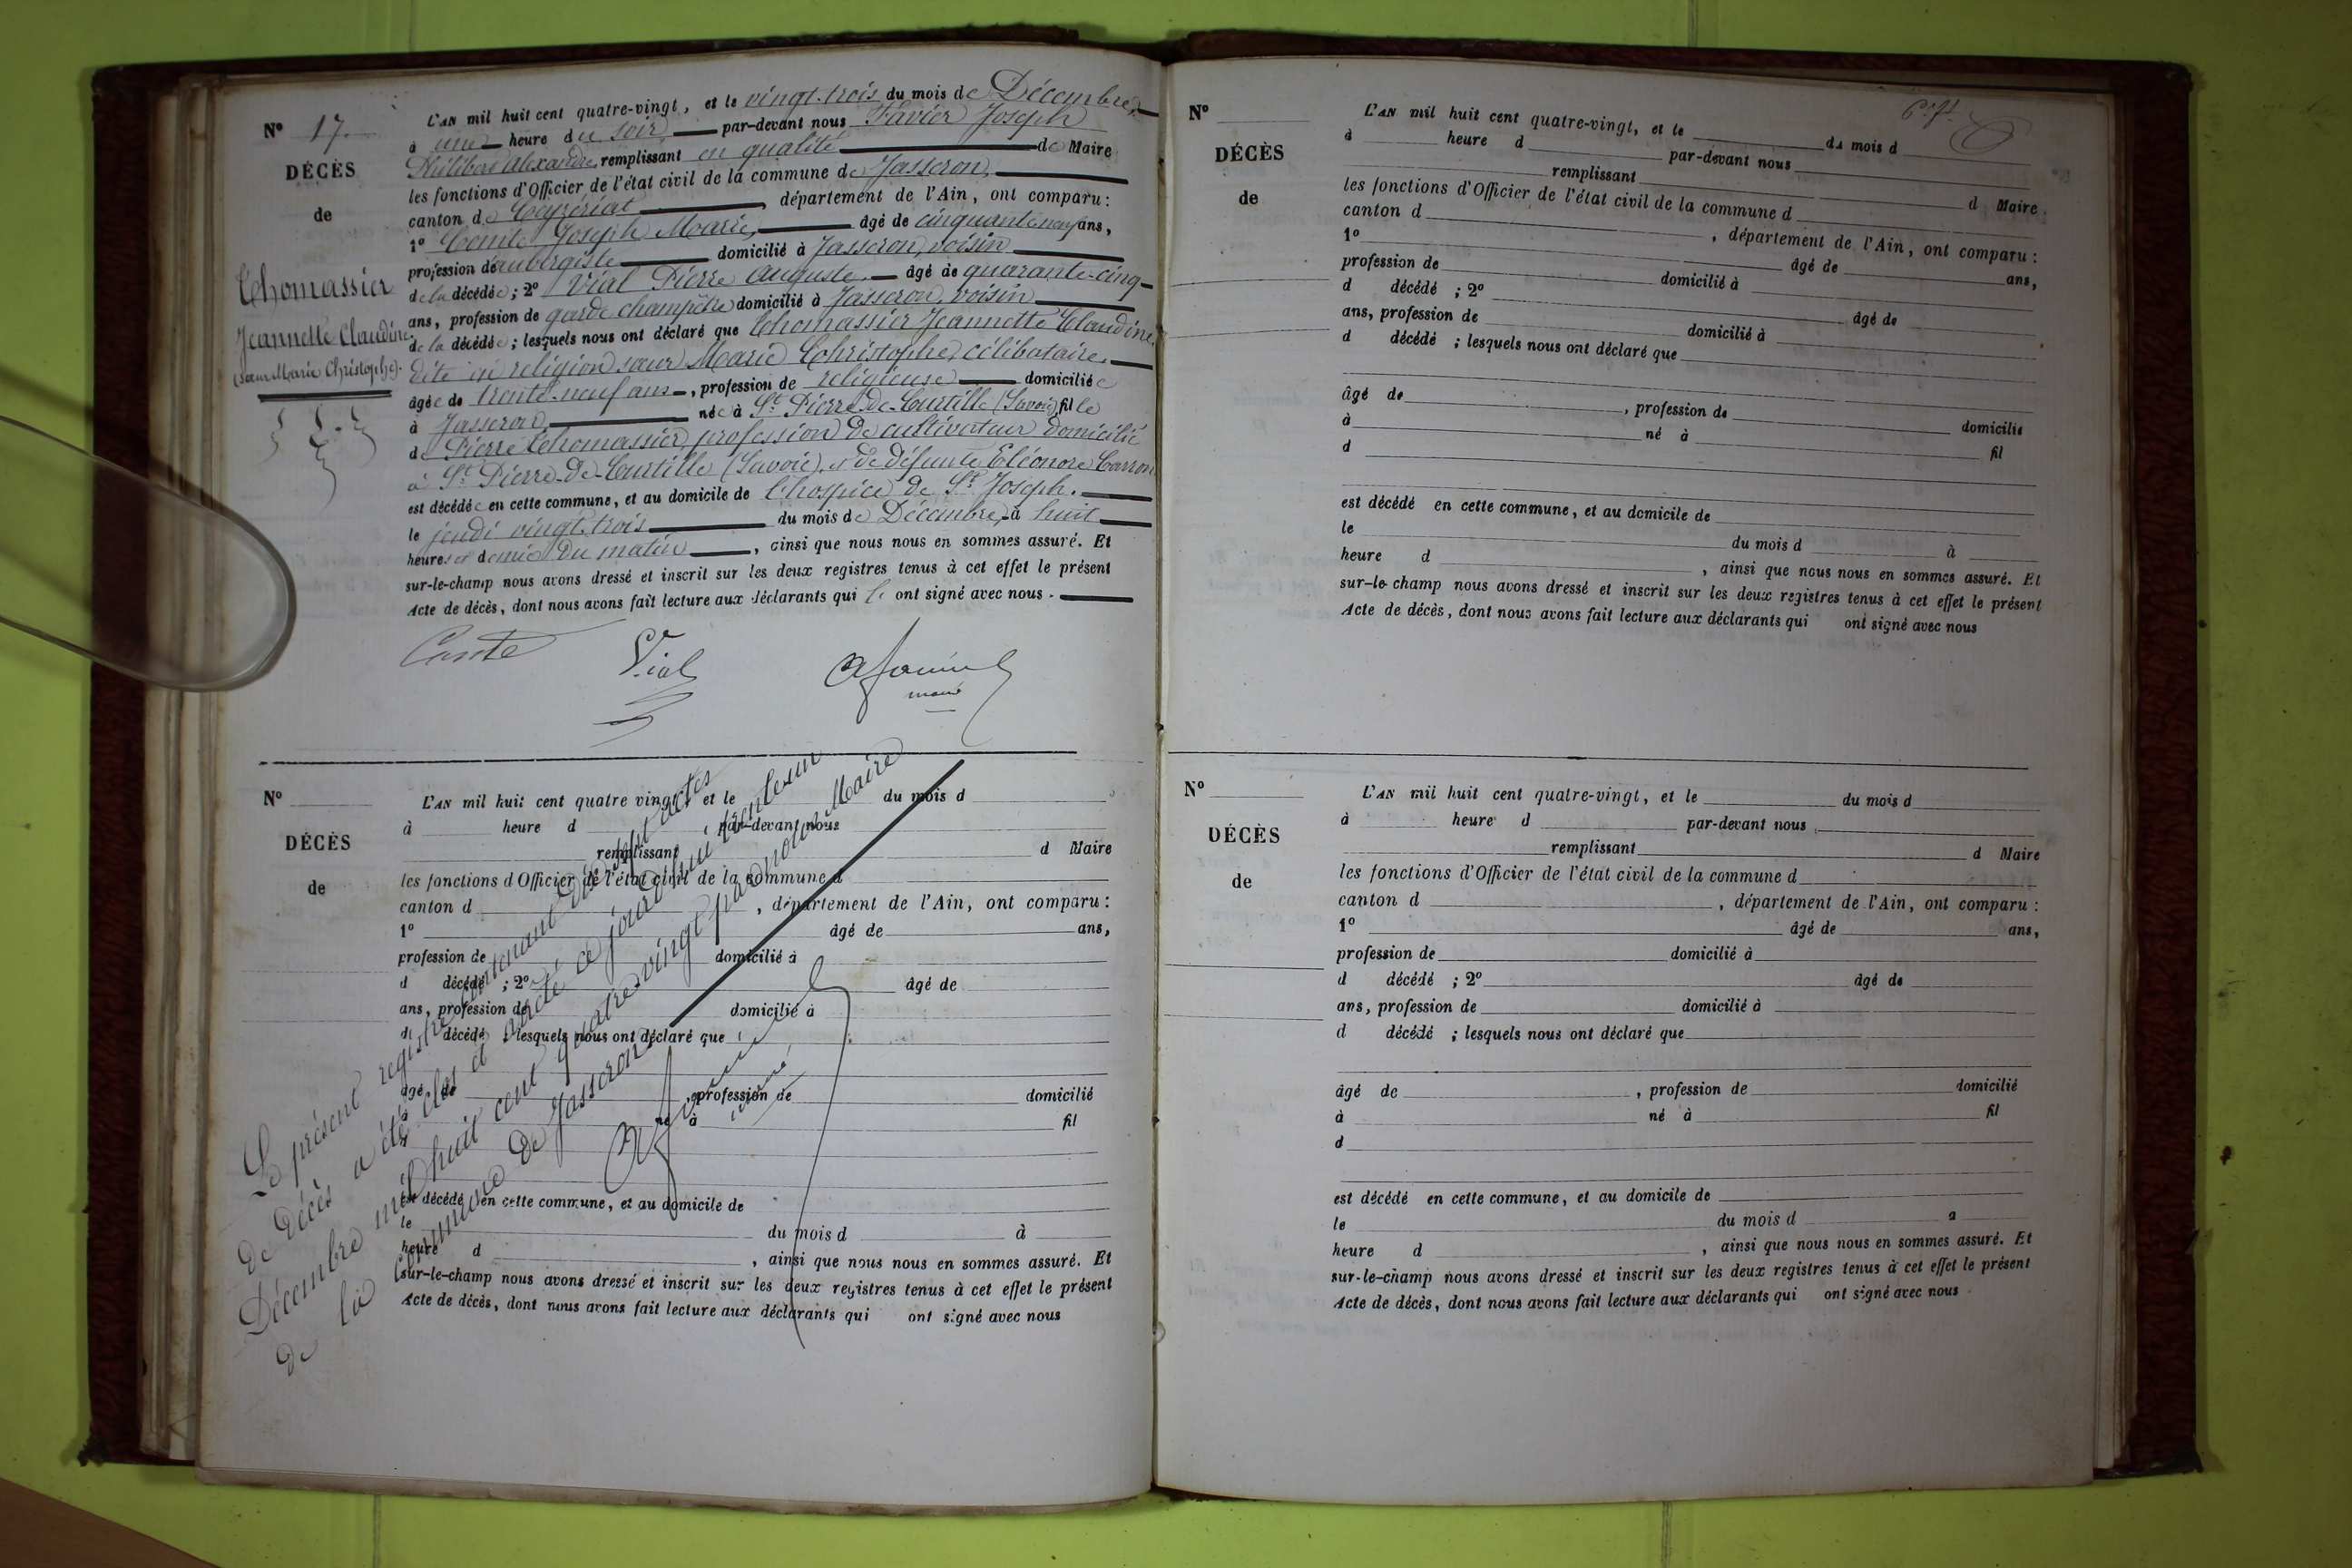 N° 17.
DÉCÈS
de
Thomassier
Jeannette Claudine
(sœur Marie Christophe).
L'AN mil huit cent quatre-vingt, et le vingt-trois du mois de Décembre,
à une heure du soir par-devant nous Favier Joseph
Philibert Alexandre remplissant en qualité de Maire
les fonctions d'Officier de l'état civil de la commune de Jasseron,
canton de Ceyzériat, département de l'Ain, ont comparu :
1° Comte Joseph Marie, âgé de cinquante neuf ans,
profession de aubergiste domicilié à Jasseron, voisin
de la décédée ; 2° Vial Pierre Auguste âgé de quarante-cinq
ans, profession de garde champêtre domicilié à Jasseron, voisin
de la décédée ; lesquels nous ont déclaré que Thomassier Jeannette Claudine,
dite en religion sœur Marie Christophe, célibataire,
âgée de trente-neuf ans, profession de religieuse domiciliée
à Jasseron, née à St Pierre-de-Curtille (Savoie) fille
de Pierre Thomassier, profession de cultivateur domicilié
à St Pierre-de-Curtille (Savoie), et de défunte Eléonore Carron
est décédée en cette commune, et au domicile de l'hospice de St Joseph.
le jeudi vingt-trois du mois de Décembre, à huit
heures et demie du matin, ainsi que nous nous en sommes assuré. Et
sur-le-champ nous avons dressé et inscrit sur les deux registres tenus à cet effet le présent
Acte de décès, dont nous avons fait lecture aux déclarants qui l' ont signé avec nous.
Comte Vial A Favier
maire
N°
DÉCÈS
de
L'AN mil huit cent quatre vingt, et le du mois d
à heure d , par-devant nous
remplissant d Maire
les fonctions d'Officier de l'état civil de la commune d
canton d , département de l'Ain, ont comparu :
1° âgé de ans,
profession de domicilié à
d décédé ; 2° âgé de
ans, profession de domicilié à
d décédé ; lesquels nous ont déclaré que
âgé de , profession de domicilié
à né à fil
d
est décédé en cette commune, et au domicile de
le du mois d à
heure d , ainsi que nous nous en sommes assuré. Et
sur-le-champ nous avons dressé et inscrit sur les deux registres tenus à cet effet le présent
Acte de décès, dont nous avons fait lecture aux déclarants qui ont signé avec nous
Le présent registre contenant dix sept actes
de décès a été clos et arrêté ce jourd'hui trente un
Décembre mil huit cent quatre vingt par nous Maire
de la Commune de Jasseron
A Favier
maire
N°
DÉCÈS
de
L'AN mil huit cent quatre-vingt, et le du mois d
à heure d par-devant nous
remplissant d Maire
les fonctions d'Officier de l'état civil de la commune d
canton d , département de l'Ain, ont comparu :
1° âgé de ans,
profession de domicilié à
d décédé ; 2° âgé de
ans, profession de domicilié à
d décédé ; lesquels nous ont déclaré que
âgé de , profession de domicilié
à né à fil
d
est décédé en cette commune, et au domicile de
le du mois d à
heure d , ainsi que nous nous en sommes assuré. Et
sur-le-champ nous avons dressé et inscrit sur les deux registres tenus à cet effet le présent
Acte de décès, dont nous avons fait lecture aux déclarants qui ont signé avec nous
N°
DÉCÈS
de
L'AN mil huit cent quatre-vingt, et le du mois d
à heure d par-devant nous
remplissant d Maire
les fonctions d'Officier de l'état civil de la commune d
canton d , département de l'Ain, ont comparu :
1° âgé de ans,
profession de domicilié à
d décédé ; 2° âgé de
ans, profession de domicilié à
d décédé ; lesquels nous ont déclaré que
âgé de , profession de domicilié
à né à fil
d
est décédé en cette commune, et au domicile de
le du mois d à
heure d , ainsi que nous nous en sommes assuré. Et
sur-le-champ nous avons dressé et inscrit sur les deux registres tenus à cet effet le présent
Acte de décès, dont nous avons fait lecture aux déclarants qui ont signé avec nous